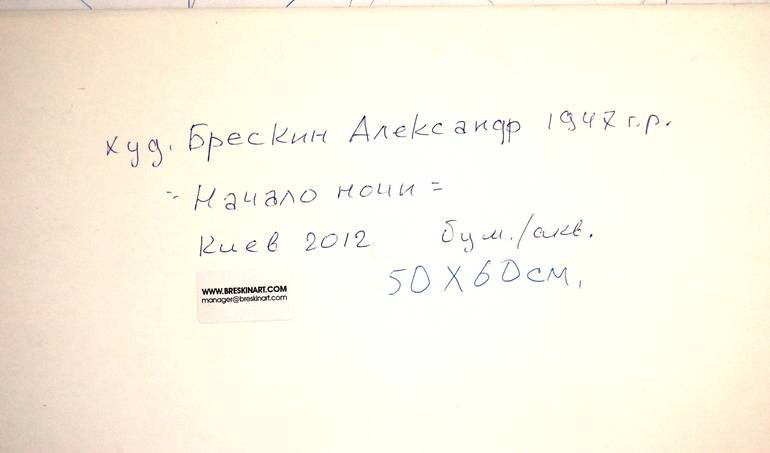 худ. Брескин Александр 1947 г.р.
= Начало ночи =
Киев 2012 бум./акв.
50 X 60 см.
WWW.BRESKINART.COM
manager@breskinart.com